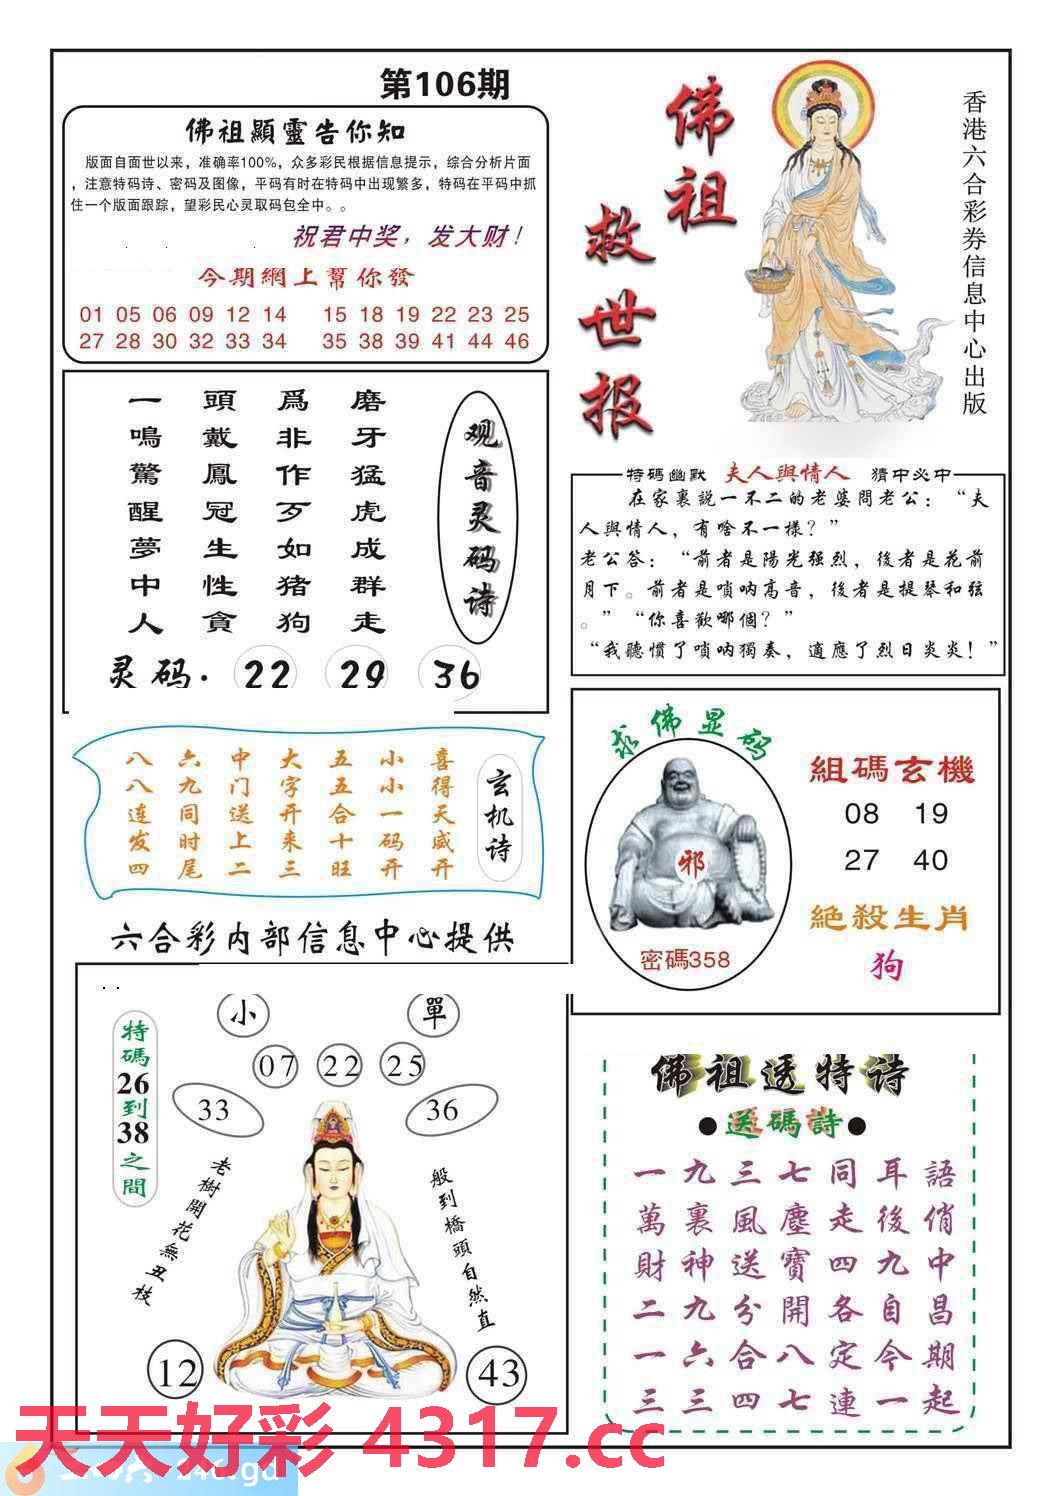 第106期
佛祖顯靈告你知
版面自面世以来，准确率100%，众多彩民根据信息提示，综合分析片面
，注意特码诗、密码及图像，平码有时在特码中出现繁多，特码在平码中抓
住一个版面跟踪，望彩民心灵取码包全中。。
祝君中奖，发大财！
今期網上幫你發
01 05 06 09 12 14 15 18 19 22 23 25
27 28 30 32 33 34 35 38 39 41 44 46
佛祖
救世报
香港六合彩券信息中心出版
观音灵码诗
磨牙猛虎成群走
爲非作歹如猪狗
頭戴鳳冠生性貪
一鳴驚醒夢中人
灵码. 22 29 36
特碼幽默 夫人與情人 猜中必中
在家裏説一不二的老婆問老公：“夫
人與情人，有啥不一樣？”
老公答：“前者是陽光强烈，後者是花前
月下。前者是嗩呐高音，後者是提琴和弦
。”“你喜歡哪個？”
“我聽慣了嗩呐獨奏，適應了烈日炎炎！”
玄机诗
喜得天威开
小小一码开
五五合十旺
大字开来三
中门送上二
六九同时尾
八八连发四
求佛显码
邪
密碼358
組碼玄機
08 19
27 40
絶殺生肖
狗
六合彩内部信息中心提供
小 單
07 22 25
33 36
特碼26到38之間
老樹開花無丑枝
般到橋頭自然直
12 43
佛祖透特诗
●送碼詩●
一九三七同耳語
萬裏風塵走後俏
財神送寶四九中
二九分開各自昌
一六合八定今期
三三四七連一起
天天好彩 4317.cc
246.gd